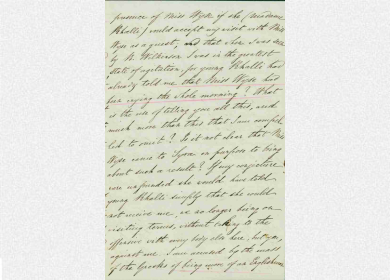 presence of Miss Wyse if she (Madame
Rhalli) could accept my visit with Miss
Wyse as a guest, and that here I was
by A. Wilkinson I was in the greatest
state of agitation, for young Rhalli had
already told me that Miss Wyse had
been crying the whole morning? What
is the use of telling you all this, and
much more than this that I am
led to omit? Is it not clear that Miss
Wyse came to Syra on purpose to bring
about such a result? If my conjecture
were unfounded she would have told
young Rhalli simply that she would
not receive me, as no longer being on
visiting terms, without taking to the
offensive with my lady else here, but you,
against me. I am accused by the most
of the Greeks of being more of an Englishman